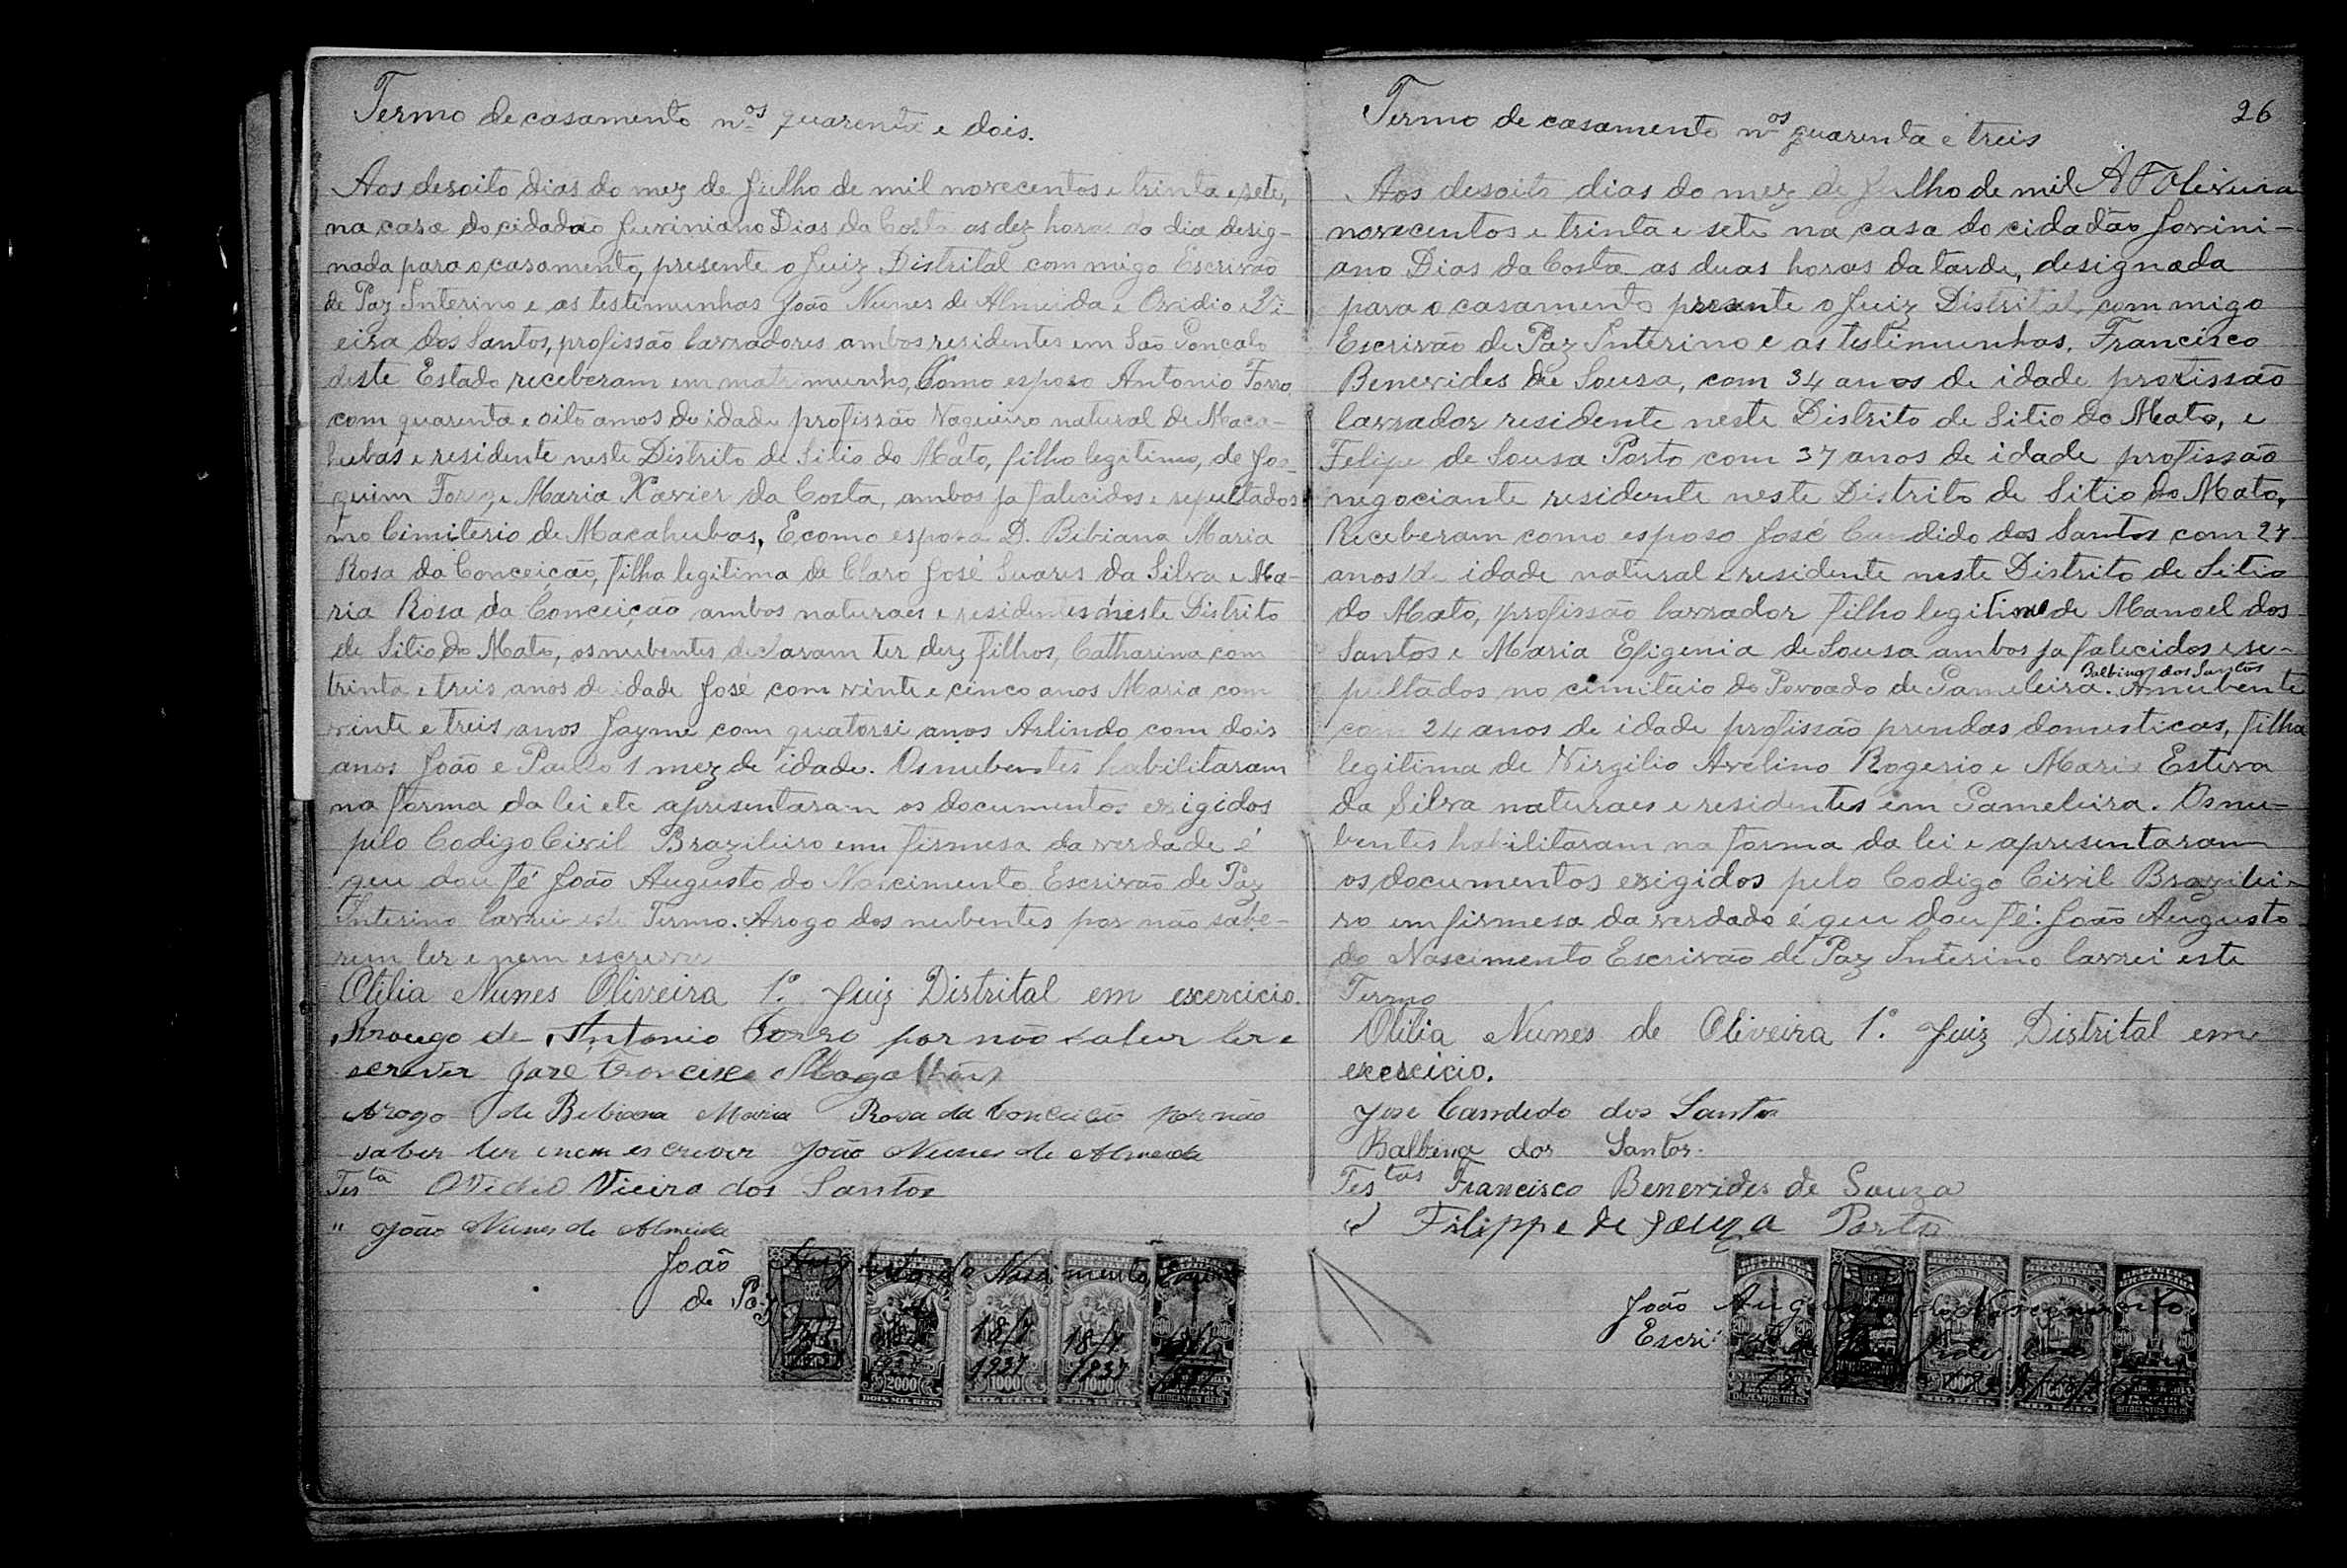 Termo de casamento nos quarenta e dois.
Aos desoito dias do mez de Julho de mil novecentos e trinta e sete,
na casa do cidadão Juviniano Dias da Costa as dez horas do dia desig-
nada para o casamento, presente o Juiz Distrital com migo Escrivão
de Paz Interino e as testemunhas João Nunes de Almeida e Ovidio Vi-
eira dos Santos, profissão lavradores ambos residentes em São Goncalo
deste Estado receberam em matrimunho, Como esposo Antonio Forro,
com quarenta e oito annos de idade profissão Vaqueiro natural de Maca-
hubas e residente neste Distrito de Sitio do Mato, filho legitimo, de Joa-
quim e Maria Xavier da Costa, ambos ja falecidos e sepultados
no Cimiterio de Macahubas, E como esposa D. Bibiana Maria
Rosa da Conceição, filha legitima de Claro José Suares da Silva e Ma-
ria Rosa da Conceição ambos naturaes e residentes neste Distrito
de Sitio do Mato, os nubentes declaram ter derz filhos, Catharina com
trinta e treis anos de idade José com vinte e cinco anos Maria com
vinte e treis anos Jayme com quatorsi anos Arlindo com dois
anos João e Paulo 1 mez de idade. Os nubentes habilitaram
na forma da lei etc apresentaram os documentos exigidos
pelo Codigo Civil Brazileiro em firmesa da verdade é
qeu dou fé João Augusto do Nascimento Escrivão de Paz
Interino lavrei este Termo. Arogo dos nubentes por não sabe-
rem ler e nem escrever
Otilia Nunes Oliveira 1º Juiz Distrital em excercicio.
Arougo de Antonio Forro por não saber ler e
screver José Francisco Magalhães
Arogo de Bibiana Maria Rosa da Conceição por não
saber ler e nem es crever João Nunes de Almeida
Testa Ovidio Vieira dos Santos
" João Nunes de Almeida
João Augusto do Nascimento, Escrivão
de Paz
18/7
1937
18/7
1937
2000
DOIS MIL REIS
1000
MIL REIS
1000
MIL REIS
26
Termo de casamento nos quarenta e treis
Aos desoito dias do mez de Julho de mil A F Oliveira
novecentos e trinta e sete na casa do cidadão Jovini-
ano Dias da Costa as duas horas da tarde, designada
para o casamento presente o Juiz Distrital, com migo
Escrivão de Paz Interino e as testimunhas, Francisco
Benevides de Sousa, com 34 anos de idade profissão
lavrador residente neste Distrito de Sitio do Mato, e
Felipe de Sousa Porto com 37 anos de idade profissão
negociante residente neste Distrito de Sitio do Mato,
Receberam como esposo José Candido dos Santos com 27
anos de idade natural e residente neste Distrito de Sitio
do Mato, profissão lavrador filho legitimo de Manoel dos
Santos e Maria Efigenia de Sousa ambos ja falecidos e se-
Balbina dos Santos
pultados no cimiteiro do Povoado de Gameleira. A nubente
com 24 anos de idade profissão prendas domesticas, filha
legitima de Virgilio Avelino Rogerio e Maria Esteva
da Silva naturaes e residentes em Gameleira. Os nu-
bentes habilitaram na forma da lei e apresentaram
os documentos exigidos pelo Codigo Civil Brazilei-
ro em firmesa da verdade é qeu dou fé. João Augusto
do Nascimento Escrivão de Paz Interino lavrei este
Termo
Otilia Nunes de Oliveira 1.º Juiz Distrital em
excecicio.
Jose Candido dos Santos
Balbina dos Santos.
Testas Francisco Benevides de Souza
Filippe de Souza Porto
João Augusto do Nascimento
Escrivão de Paz
MIL REIS
MIL REIS